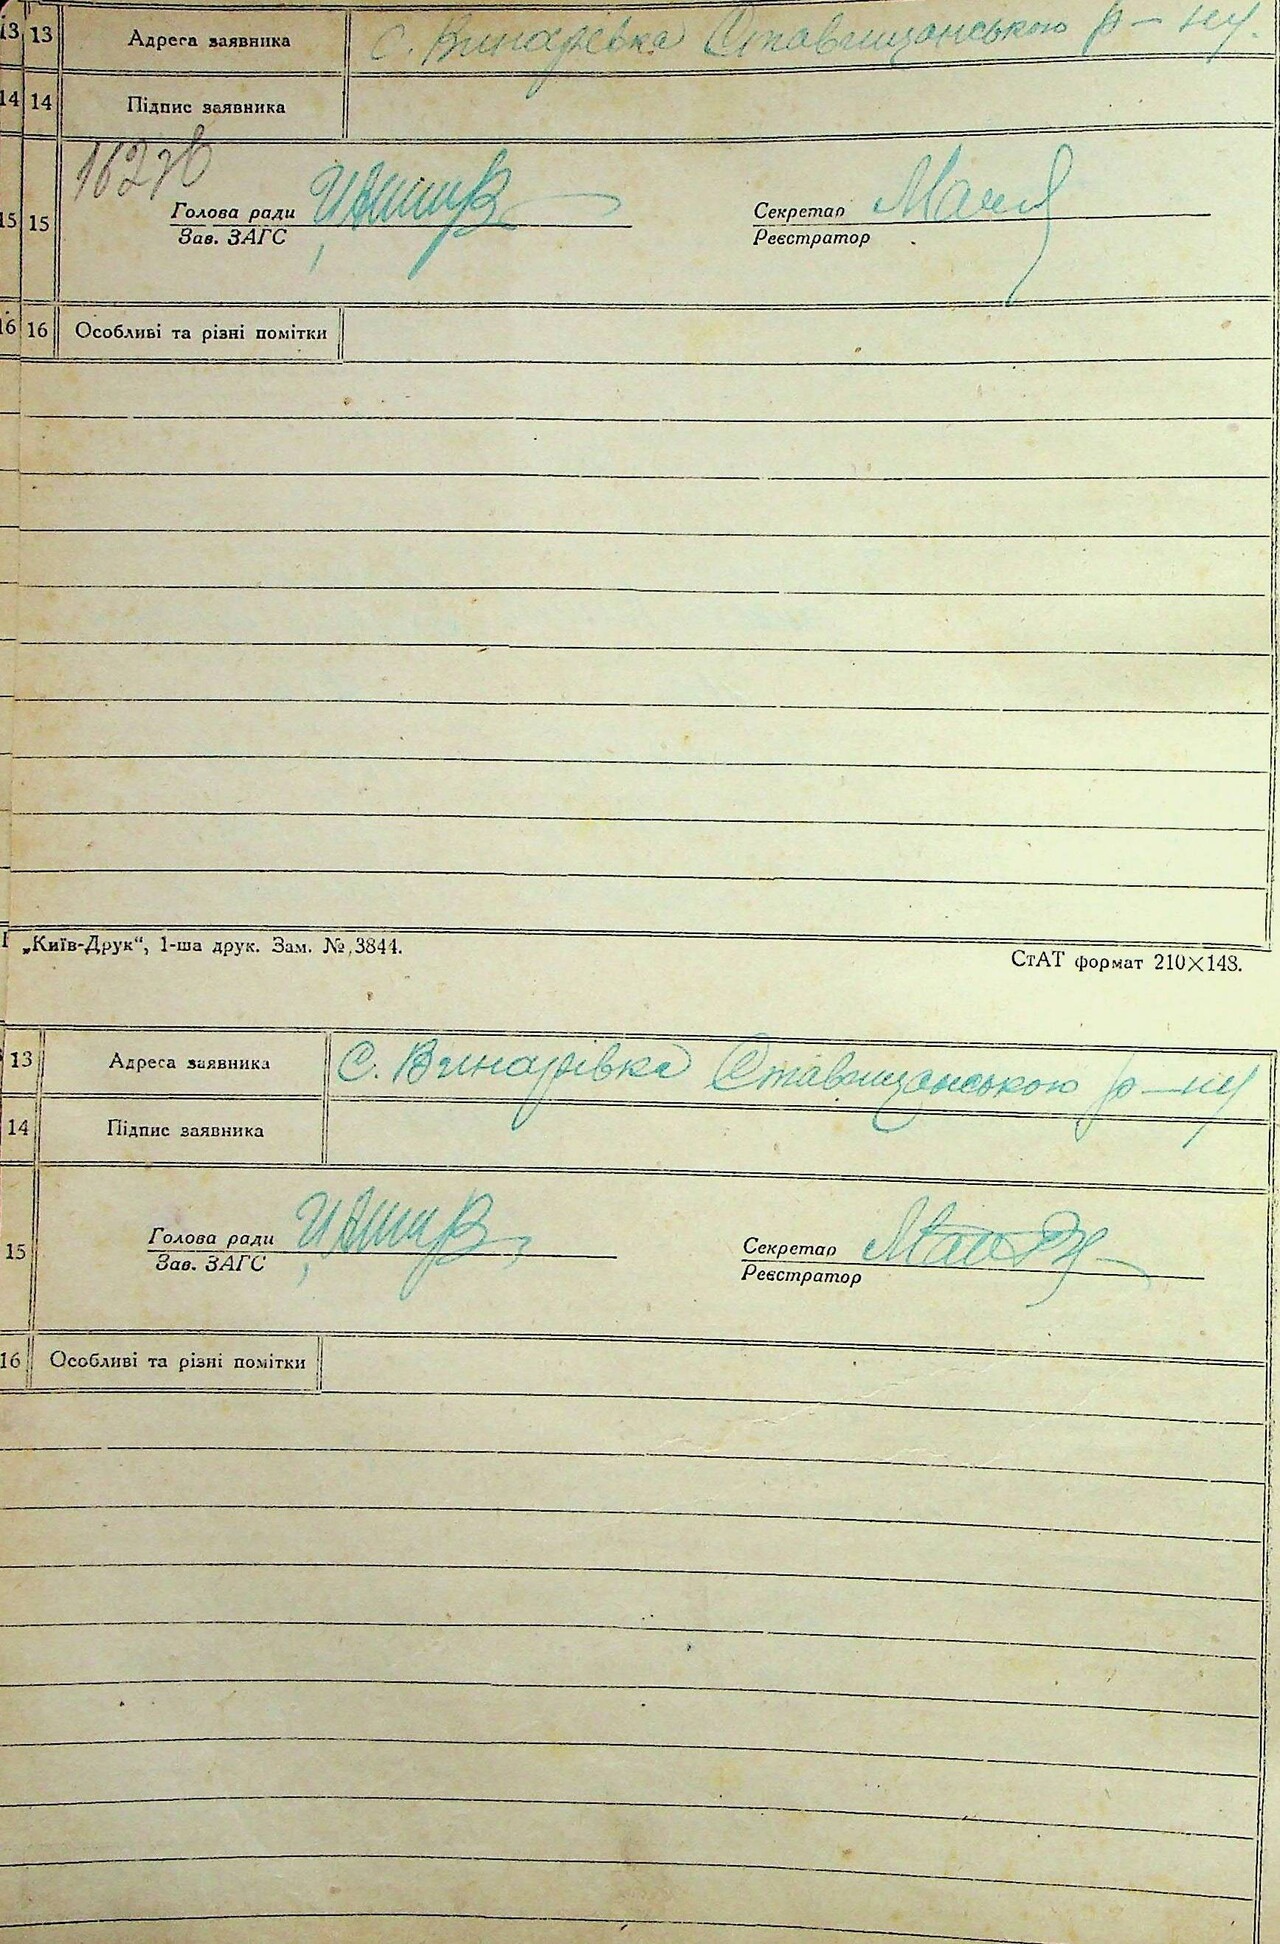 13 13 Адреса заявника с. Винарівка Ставищанською р-ну.
14 14 Підпис заявника
Голова ради Секретар
15 15 Зав. ЗАГС Реєстратор
16 16 Особливі та різні помітки
„Київ-Друк“, 1-ша друк. Зам. № 3844. СтАТ формат 210×148.
13 Адреса заявника С. Винарівка Ставищанською р-ну
14 Підпис заявника
Голова ради Секретар
15 Зав. ЗАГС Реєстратор
16 Особливі та різні помітки